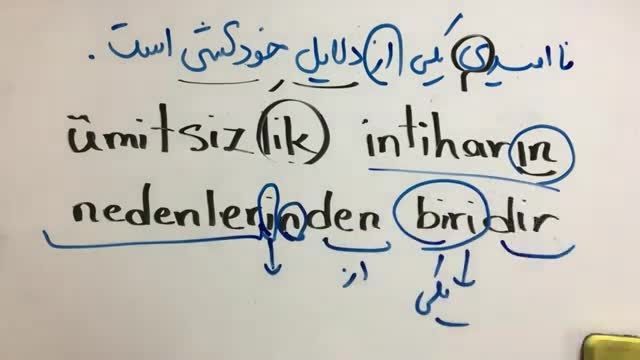 ناامیدی یکی از دلایل خودکشی است.
ümitsizlik intiharın
nedenlerinden biridir
از یکی